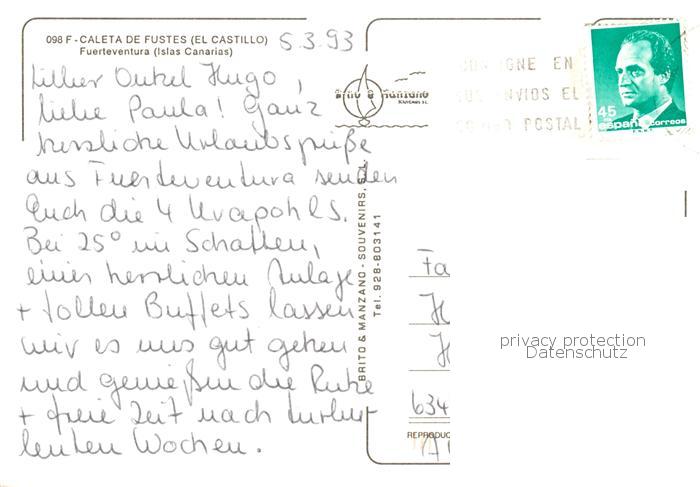 098 F - CALETA DE FUSTES (EL CASTILLO)
Fuerteventura (Islas Canarias)
5.3.93
Lieber Onkel Hugo,
liebe Paula! Ganz
herzliche Urlaubsgrüße
aus Fuerteventura senden
Euch die 4 Krapohls.
Bei 25° im Schatten,
einer herrlichen Anlage
+ tollen Buffets lassen
wir es uns gut gehen
und genießen die Ruhe
+ freie Zeit nach turbu-
lenten Wochen.
BRITO & MANZANO - SOUVENIRS, S.L.
Tel. 928-803141
Brito & Manzano
SOUVENIRS S.L.
CONSIGNE EN
SUS ENVIOS EL
POSTAL
45
españa correos
Fa
H
H
634
REPRODUC
privacy protection
Datenschutz